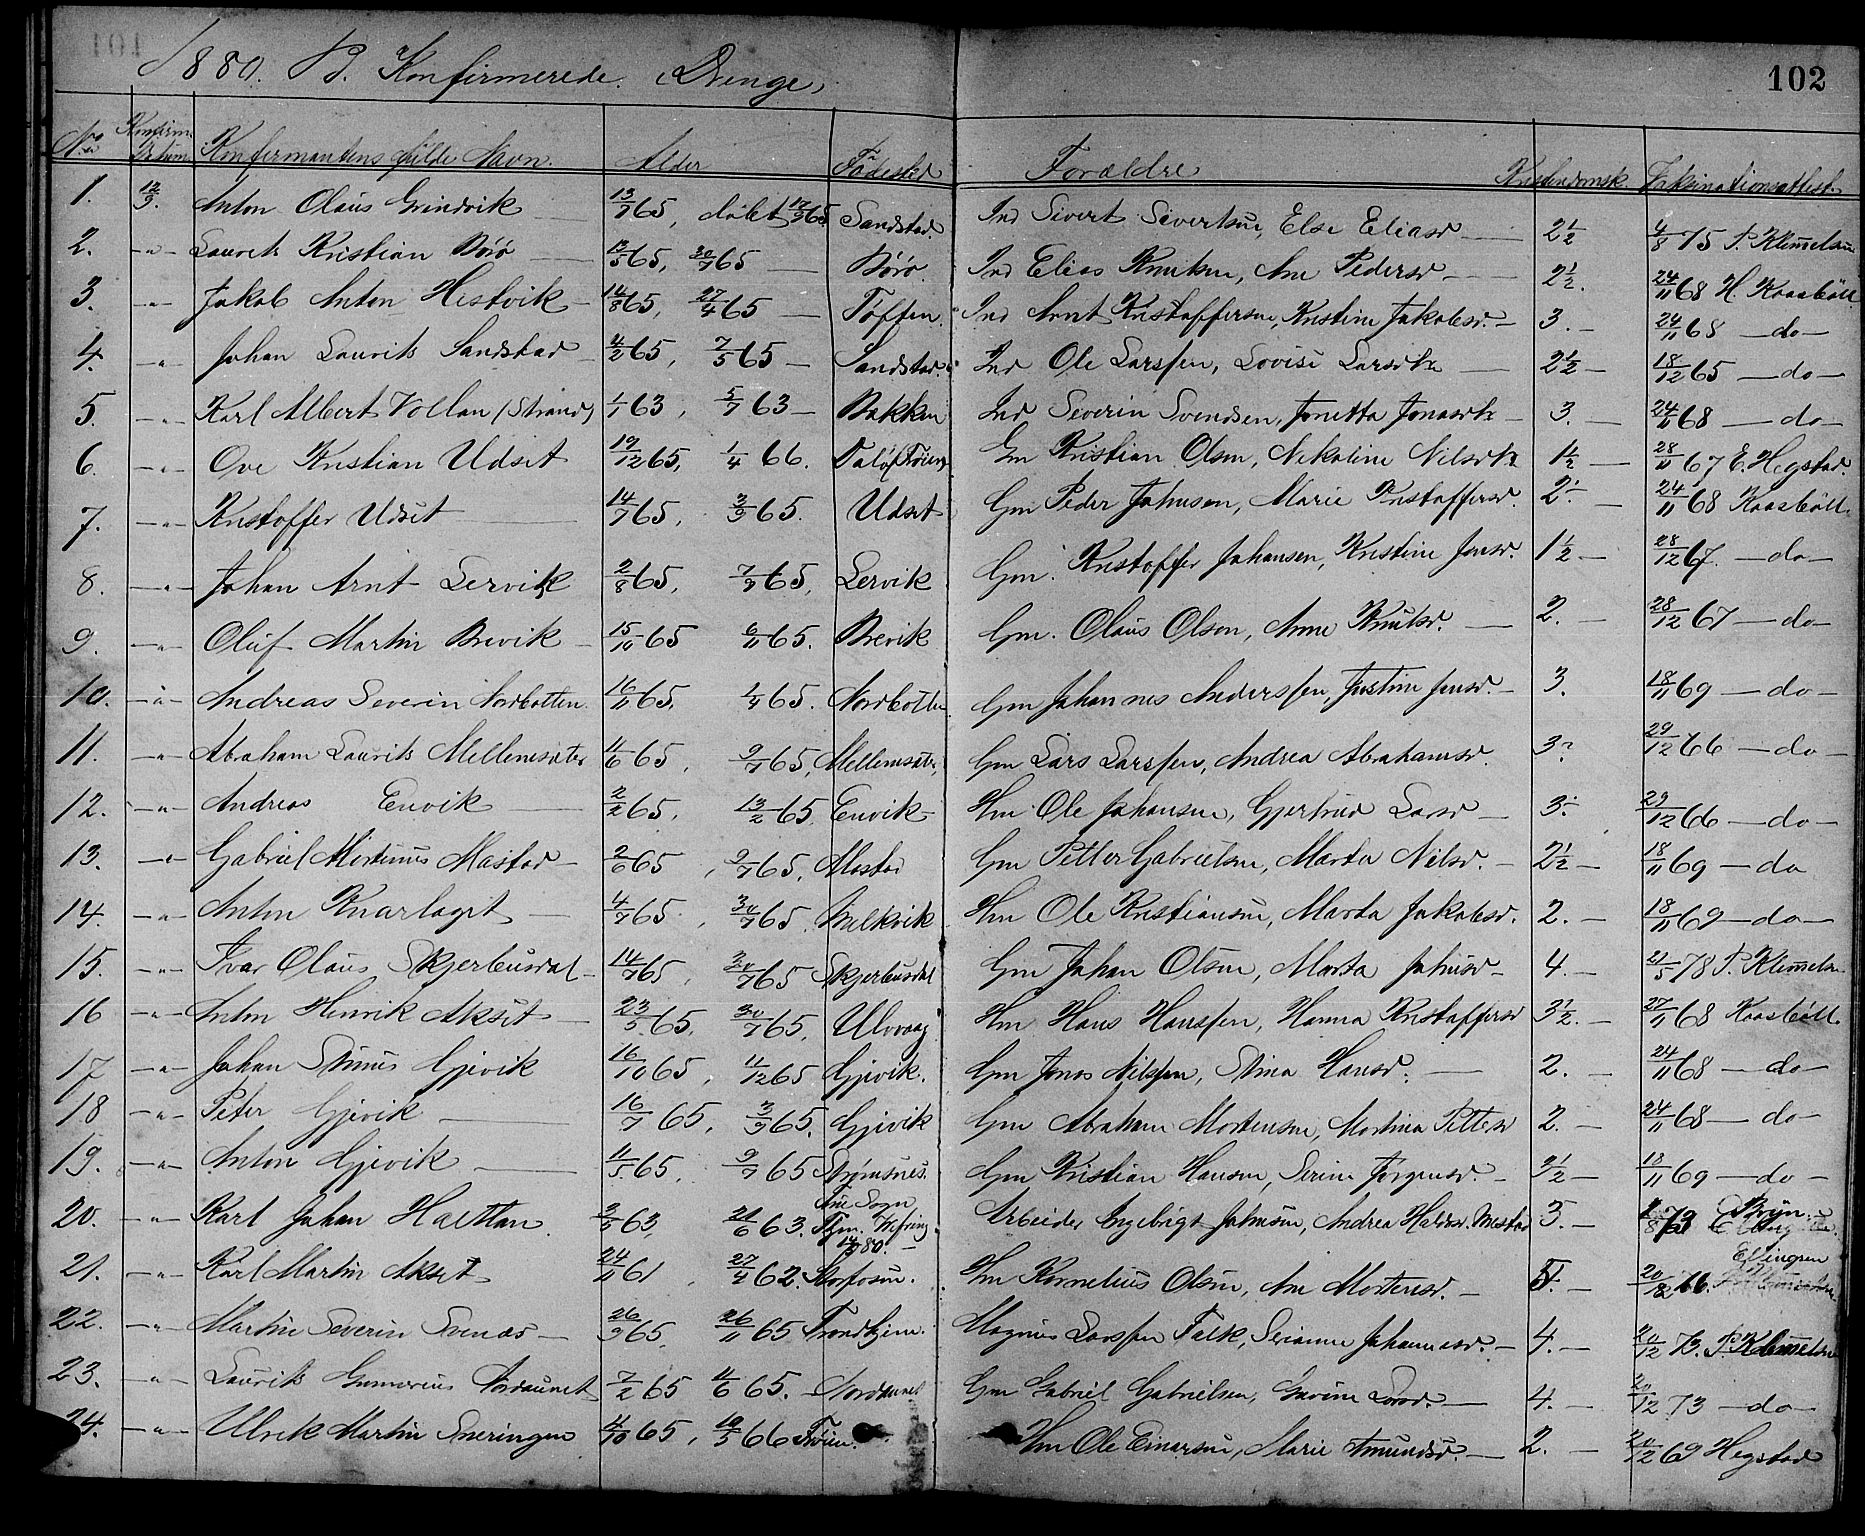 1880. B. Konfirmerede. (Drenge)
102
No Konfirm. Datum Konfirmantens fulde Navn. Alder Födested Forældre Kristendomsk. Vaksinationsattest
1. 12/9. Anton Olaus Grindvik 13/7 65, döbt 17/9 65. Sandstad. Ind Sivert Sivertsen, Else Eliasd 2 1/2 4/8 75 P. Klemetsen
2. -"- Laurits Kristian Börö 13/5 65, 30/7 65 Börö. Ind Elias Knutsen, Ane Pedersd 2 1/2. 24/11 68 H. Kaasböll
3. -"- Jakob Anton Hestvik 14/8 65, 27/4 65 Töffen. Ind Arnt Kristoffersen, Kristine Jakobsd. 3. 24/11 68 do
4. -"- Johan Laurits Sandstad 4/2 65, 7/5 65 Sandstad. Ind Ole Larssen, Lovise Larsdtr 2 1/2 18/12 65 do
5. -"- Karl Albert Vollan (Strand) 1/1 63, 5/7 63 Bakken Ind Severin Svendsen, Jonetta Jonasdtr 3. 24/11 68 do
6. -"- Ove Kristian Udset 19/12 65, 1/4 66. Gm Kristian Olsen, Nikoline Nilsdtr 1 1/2 28/11 67 E. Hegstad.
7. -"- Kristoffer Udset 14/7 65, 3/9 65. Udset Gm Peder Johnsen, Marie Kristoffersd. 2. 24/11 68 Kaasböll.
8. -"- Johan Arnt Lervik 2/8 65, 7/9 65, Lervik Gm. Kristoffer Johansen, Kristine Jonsd. 1 1/2 28/12 67. do
9. -"- Oluf Martin Brevik 15/10 65 6/11 65. Brevik Gm. Olaus Olsen, Anne Knutsd. 2. 28/12 67 do
10. -"- Andreas Severin Nordbotten. 16/11 65, 65. Nordbotten Gm Johannes Anderssen, Justine Jensd. 3. 18/11 69 do
11. -"- Abraham Laurits Mellemsæter 4/6 65, 9/7 65, Mellemsæter, Gm Lars Larssen, Andrea Abrahamsd. 3. 29/12 66 do
12. -"- Andreas Envik 2/2 65, 13/2 65, Envik Hm Ole Johansen, Gjertrud Larsd 3. 29/12 66 do
13. -"- Gabriel Mortinus Mastad 2/6 65, 9/7 65, Mastad Gm Petter Gabrielsen, Marta Nilsd. 2 1/2 18/11 69 do
14. -"- Anton Knarlaget 4/7 65, 30/7 65. Melkvik Hm Ole Kristiansen, Marta Jakobsd. 2. 18/11 69 do
15. -"- Ivar Olaus Skjerbusdal 14/7 65, 30/7 65 Skjerbusdal Gm Johan Olsen, Marta Johnsd 4. 21/5 78 P. Klemetsen
16 -"- Anton Henrik Akset 23/5 65, 30/7 65, Ulvvaag Hm Hans Hanssen, Hanna Kristoffersd 3 1/2. 27/11 68 Kaasböll.
17 -"- Johan Stinus Gjevik 16/10 65, 4/12 65 Gjevik. Gm Jonas Nilssen, Stina Hansd. 2. 24/11 68 do
18 -"- Peter Gjevik 16/7 65, 3/9 65. Gjevik Gm Abraham Mortensen, Martina Pettersd 2. 24/11 68 do
19. -"- Anton Gjevik 4/5. 65, 9/7 65 Strömsnes. Gm Kristian Hansen, Serine Jörgensd. 2 1/2 18/11 69 do
20. -"- Karl Johan Haltlan 3/5 63, 21/6 63. Arbeider Ingebrigt Johnsen, Andrea Haldosd. 3. 1/8 73
21. -"- Karl Martin Akset 24/11 61, 27/4 62. Storfosen. Hm Kornelius Olsen, Ane Mortensd. 20/12 76. Ellingsen
22. -"- Martin Severin Svendås 26/9 65, 26/11 65 Trondhjem. Magnus Larssen Falk, Serianne Johannesd. 4. 20/12 73. P. Klemetsen
23. -"- Laurits Gunnerius Nordaunet 7/2 65 4/6 65. Nordaunet Gm Gabriel Gabrielsen, Larsd. 4. 20/12 73 do
24. -"- Ulrik Martin Sneringen 4/10 65, 10/5 66 Fröien. Hm Ole Einarsen, Marie Amundsd. 2. 20/12 69 Hegstad